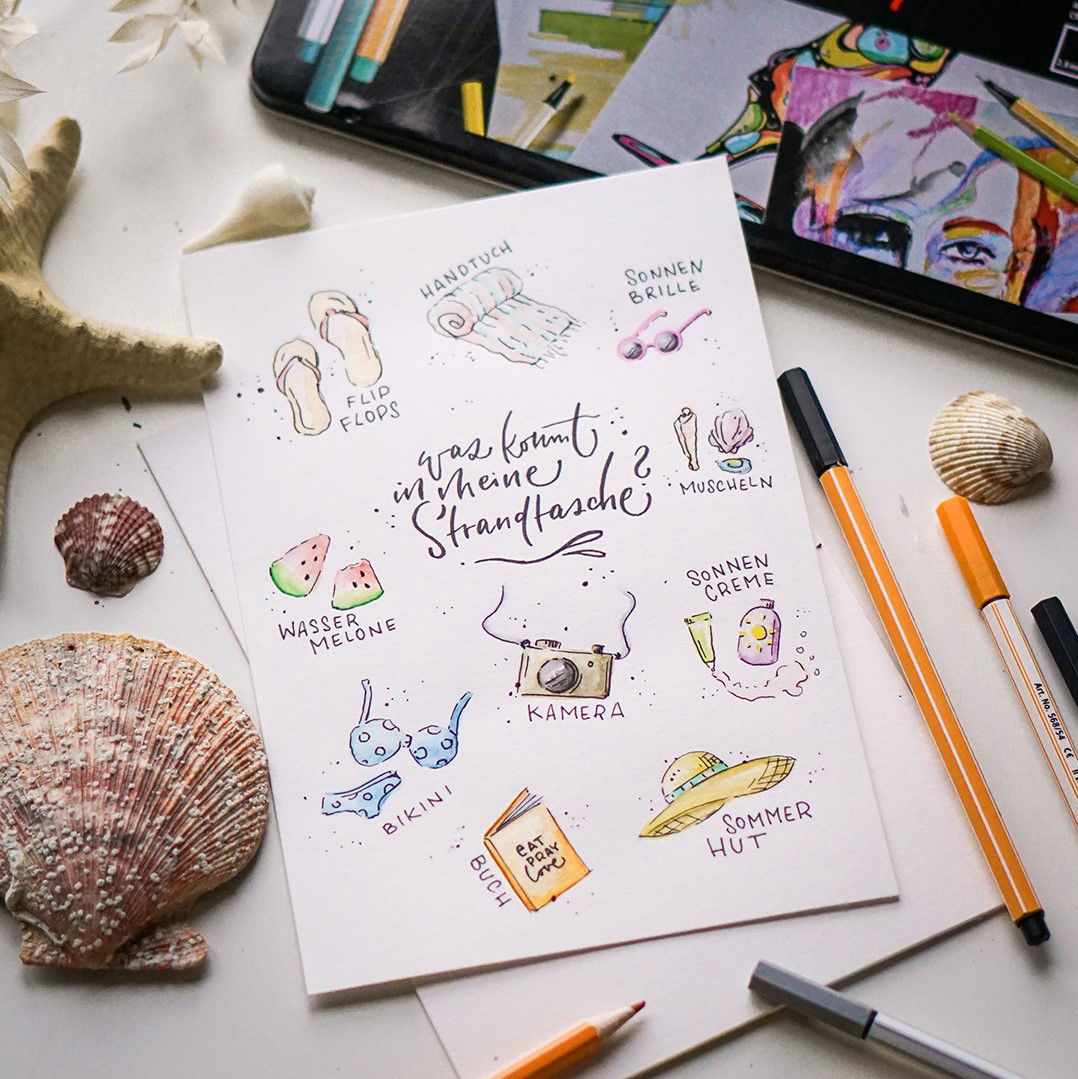 HANDTUCH
SONNEN
BRILLE
FLIP
FLOPS
was kommt
in meine
Strandtasche?
MUSCHELN
WASSER
MELONE
SONNEN
CREME
KAMERA
BIKINI
BUCH
EAT
PRAY
Love
SOMMER
HUT
Art. No. 568/54 CE